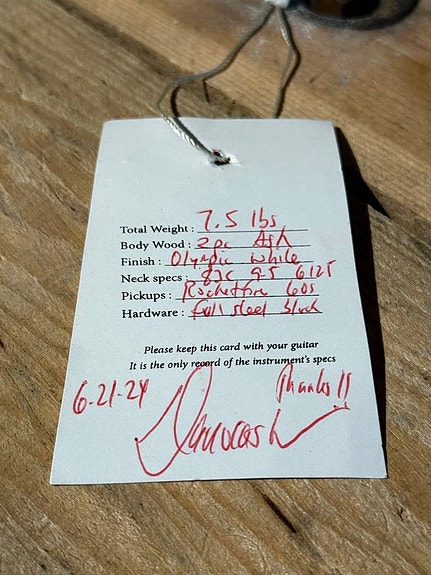 Total Weight : 7.5 lbs
Body Wood : 2pc Ash
Finish : Olympic white
Neck specs : 82C 9.5 6125
Pickups : Rocketfire 60s
Hardware : full steel block
Please keep this card with your guitar
It is the only record of the instrument's specs
6-21-24
Thanks!!